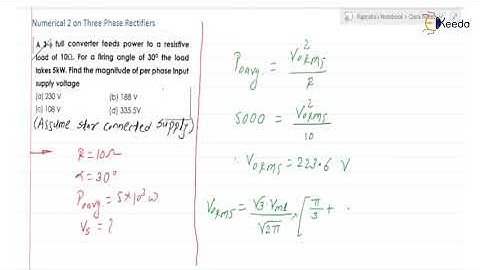 Numerical 2 on Three Phase Rectifiers
Ekeeda
A 3-ϕ full converter feeds power to a resistive
load of 10Ω. For a firing angle of 30° the load
takes 5kW. Find the magnitude of per phase input
supply voltage
(a) 230 V (b) 188 V
(c) 108 V (d) 335.5V
(Assume star connected supply)
R = 10Ω
α = 30°
Poavg = 5×10³ W
Vs = ?
Poavg. = V²orms / R
5000 = V²orms / 10
∴ Vorms = 223.6 V
Vorms = √3 Vml / √2π [π/3 +